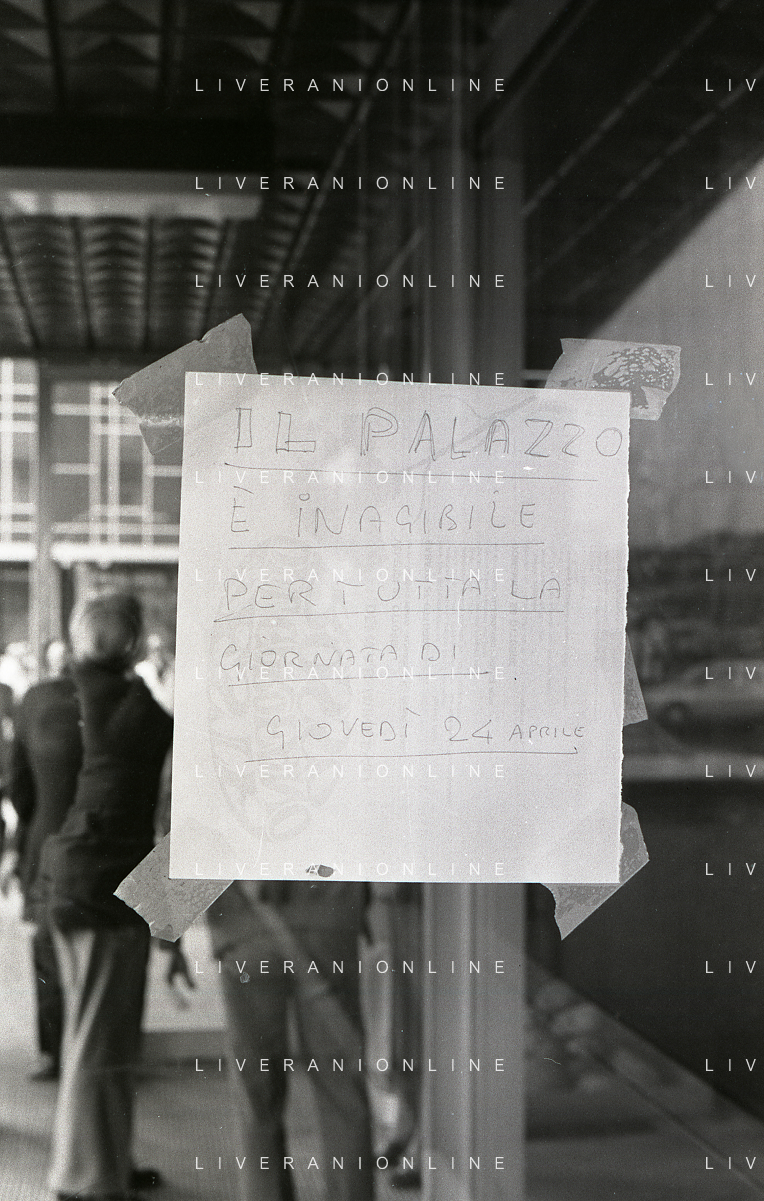 LIVERANIONLINE LIV
LIVERANIONLINE LIV
LIVERANIONLINE LIV
LIVERANIONLINE LIV
IL PALAZZO
LIVERANIONLINE LIV
È INAGIBILE
LIVERANIONLINE LIV
PER TUTTA LA
GIORNATA DI
LIVERANIONLINE LIV
GIOVEDÌ 24 APRILE
LIVERANIONLINE LIV
LIVERANIONLINE LIV
LIVERANIONLINE LIV
LIVERANIONLINE LIV
LIVERANIONLINE LIV